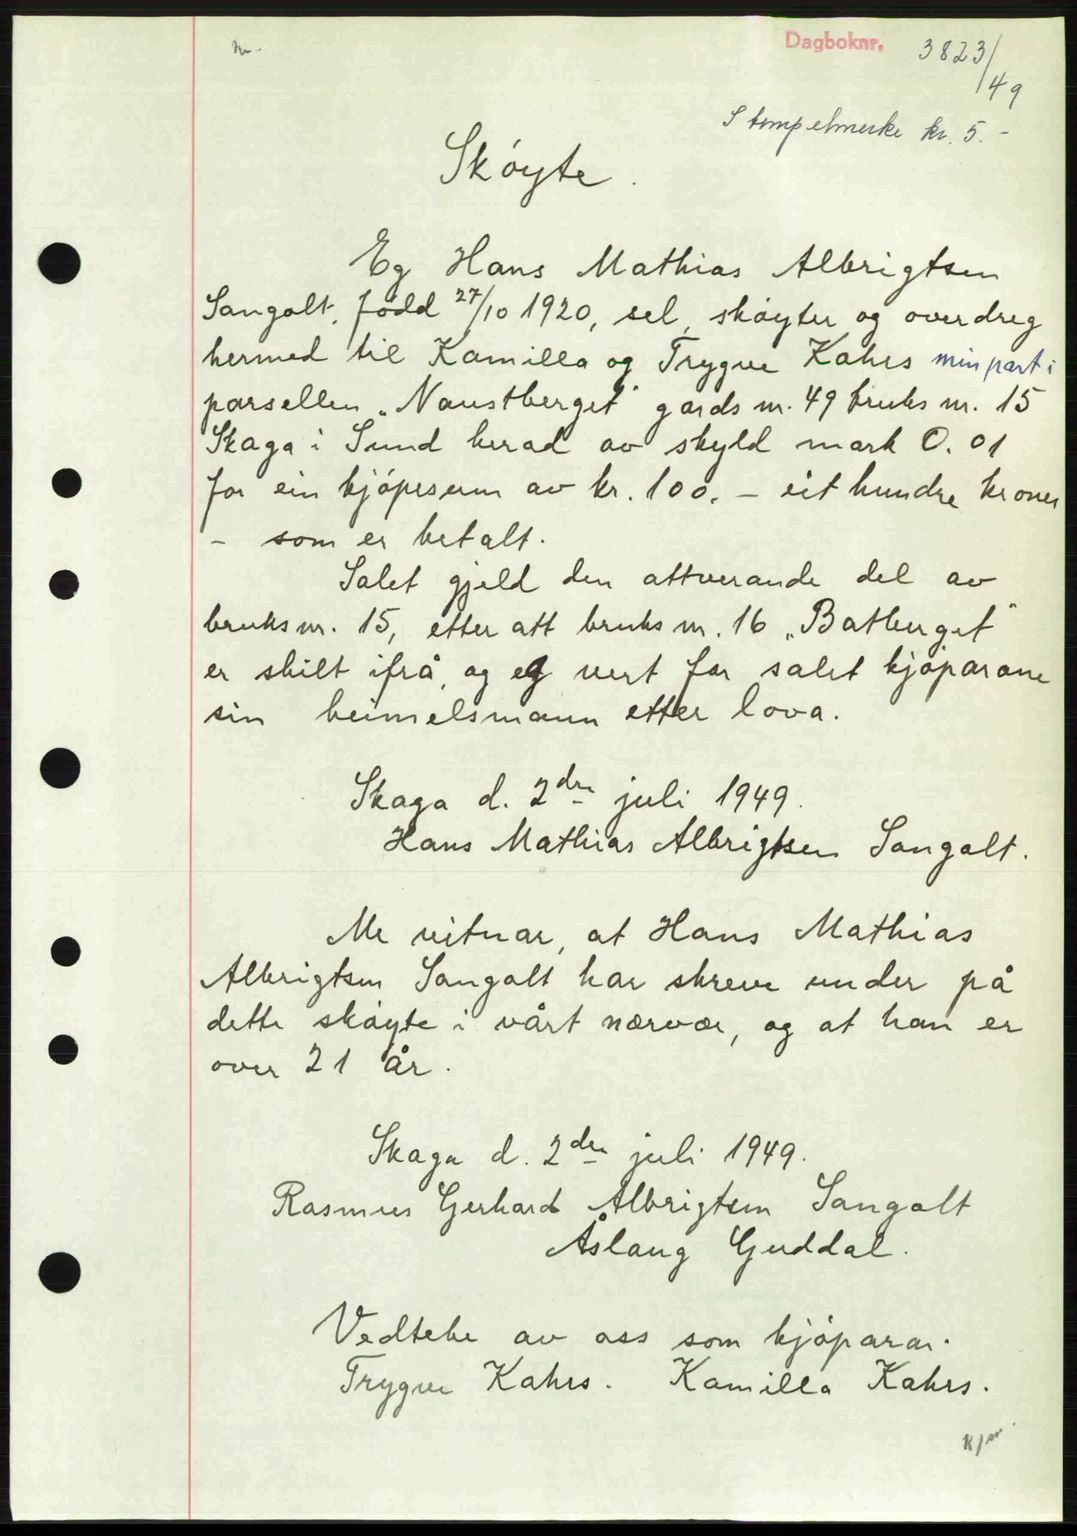 Dagboknr. 3823/49
Stempelmerke kr. 5.-
Skøyte.
Eg Hans Mathias Albrigtsen
Sangolt, fødd 27/10 1920, sel, skøyter og overdreg
hermed til Kamilla og Trygve Kahrs min part i
parsellen „Naustberget" gards nr. 49 bruks nr. 15
Skaga i Sund herad av skyld mark 0.01
for ein kjøpesum av kr. 100.- eit hundre kroner
- som er betalt.
Salet gjeld den attverande del av
bruks nr. 15, etter att bruks nr. 16 „Batberget"
er skilt ifrå, og eg vert for salet kjøparane
sin heimelsmann etter lova.
Skaga d. 2dre juli 1949.
Hans Mathias Albrigtsen Sangolt.
Me vitnar, at Hans Mathias
Albrigtsen Sangolt har skreve under på
dette skøyte i vårt nærvær, og at han er
over 21 år.
Skaga d. 2dre juli 1949.
Rasmus Gerhard Albrigtsen Sangolt
Åslaug Guddal.
Vedteke av oss som kjøparar.
Trygve Kahrs. Kamilla Kahrs.